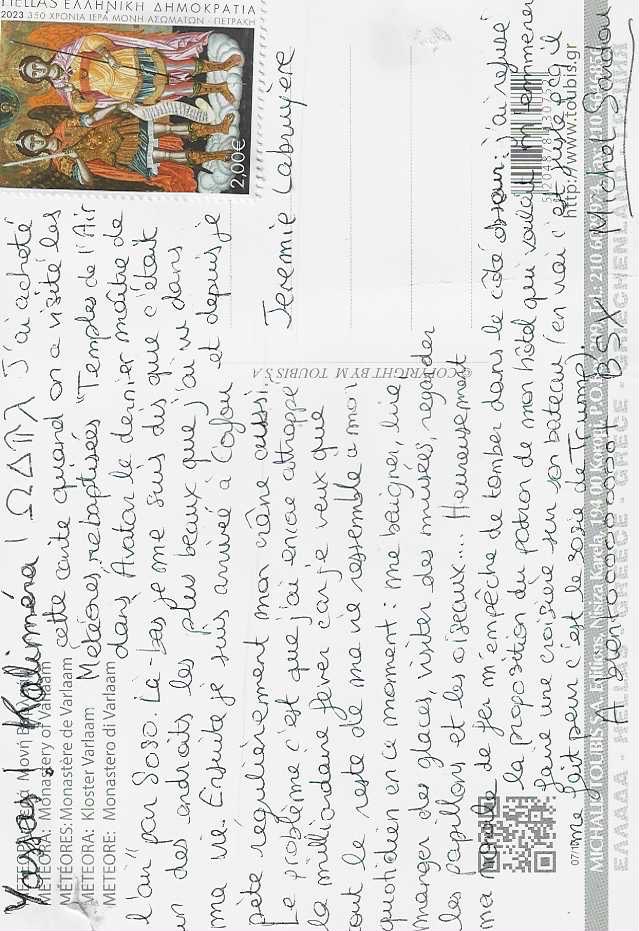 HELLAS ΕΛΛΗΝΙΚΗ ΔΗΜΟΚΡΑΤΙΑ
2023 350 ΧΡΟΝΙΑ ΙΕΡΑ ΜΟΝΗ ΑΣΩΜΑΤΩΝ - ΠΕΤΡΑΚΗ
2,00€
Yassas! Kaliméra! ΩΔΠλ J'ai acheté
cette carte quand on a visité les
Météores, rebaptisées "Temples de l'Air
dans Avatar le dernier maître de
l'air" par Soso. Là-bas je me suis dis que c'était
un des endroits les plus beaux que j'ai vu dans
ma vie. Ensuite je suis arrivé à Corfou et depuis je
pète régulièrement mon crâne aussi.
Le problème c'est que j'ai encore attrappé
la milliardaire fever car je veux que
tout le reste de ma vie ressemble à mon
quotidien en ce moment : me baigner, lire
manger des glaces, visiter des musées, regarder
les papillons et les oiseaux... Heureusement
ma morale de fer m'empêche de tomber dans le côté obscur : j'ai refusé
la proposition du patron de mon hôtel qui voulait m'emmener
faire une croisière sur son bateau (en vrai c'est juste pcq il
me fait peur c'est le sosie de Trump).
A bientoooooooot BSX Michel Sardou
Jérémie Labruyère
Μονή Β
METEORA: Monastery of Varlaam
MÉTÉORES: Monastère de Varlaam
METEORA: Kloster Varlaam
METEORE: Monastero di Varlaam
© COPYRIGHT BY M. TOUBIS S.A.
http://www.toubis.gr
07/10
MICHALIS TOUBIS S.A. Editions, Nisiza Karela, 194 00 Koropi, P.O. Tel.: 210 Fax: 210
ΕΛΛΑΔΑ - HELLAS - GREECE - GRÈCE - GRIECHENLAND